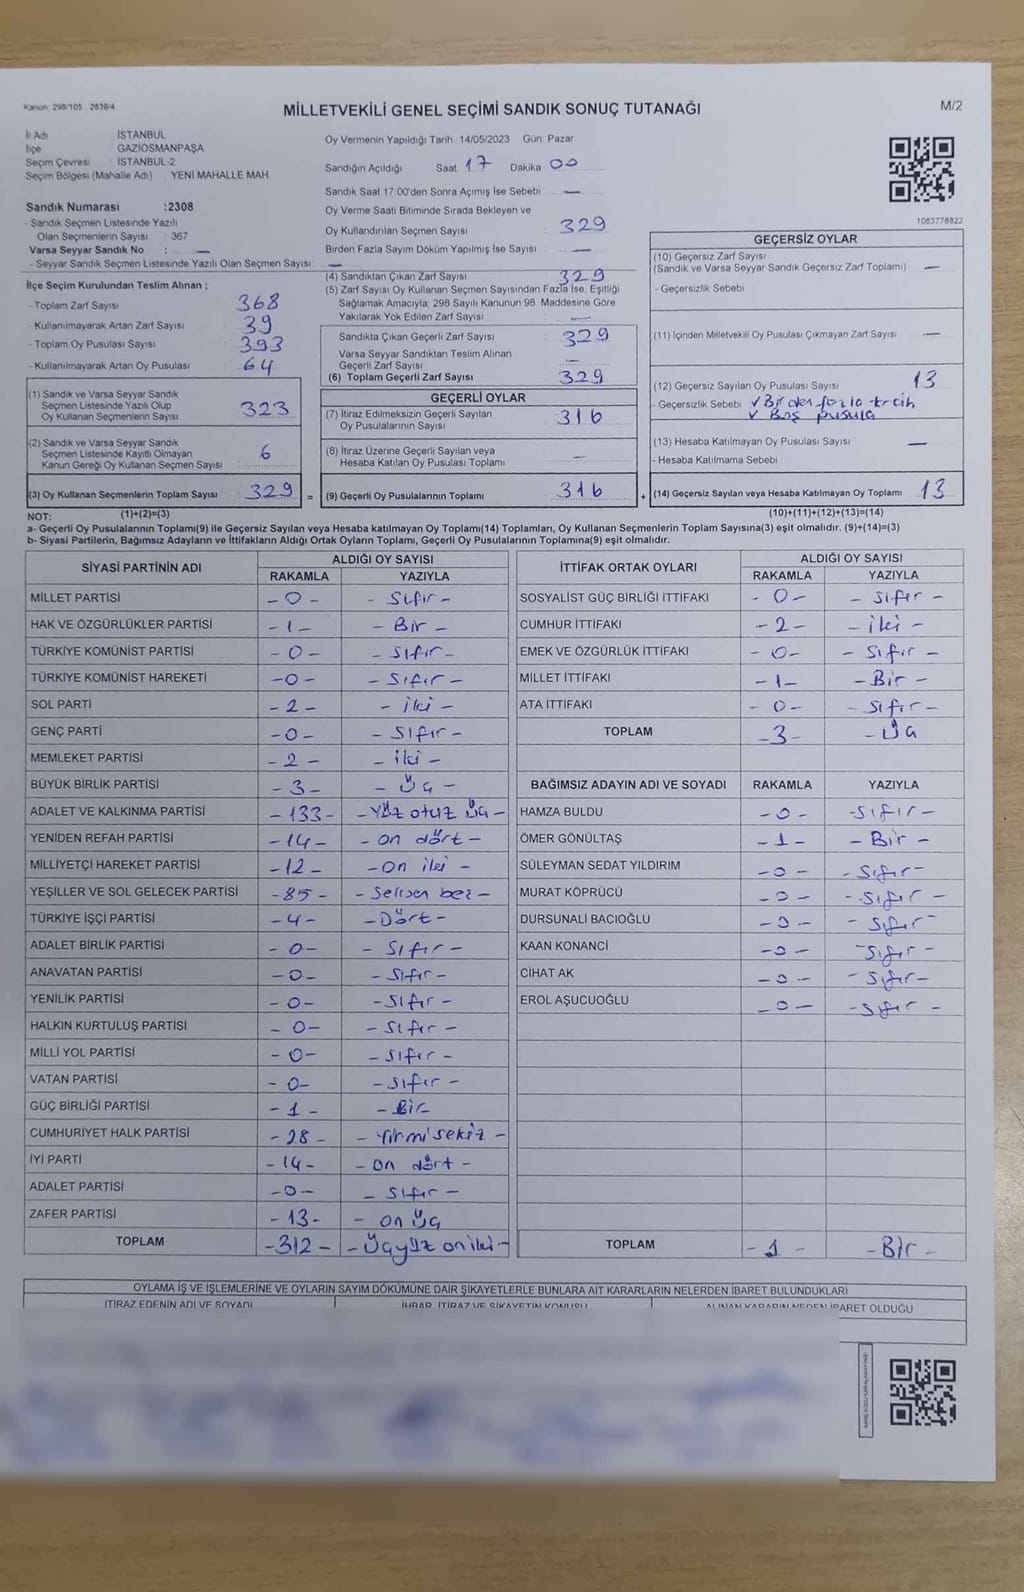 Kanun: 298/105 . 2839/4
MİLLETVEKİLİ GENEL SEÇİMİ SANDIK SONUÇ TUTANAĞI
M/2
İl Adı İSTANBUL
İlçe GAZİOSMANPAŞA
Seçim Çevresi İSTANBUL-2
Seçim Bölgesi (Mahalle Adı) YENİ MAHALLE MAH
Sandık Numarası :2308
- Sandık Seçmen Listesinde Yazılı
Olan Seçmenlerin Sayısı : 367
Varsa Seyyar Sandık No : —
- Seyyar Sandık Seçmen Listesinde Yazılı Olan Seçmen Sayısı: —
İlçe Seçim Kurulundan Teslim Alınan ;
- Toplam Zarf Sayısı 368
- Kullanılmayarak Artan Zarf Sayısı 39
- Toplam Oy Pusulası Sayısı 393
- Kullanılmayarak Artan Oy Pusulası 64
(1) Sandık ve Varsa Seyyar Sandık
Seçmen Listesinde Yazılı Olup
Oy Kullanan Seçmenlerin Sayısı 323
(2) Sandık ve Varsa Seyyar Sandık
Seçmen Listesinde Kayıtlı Olmayan
Kanun Gereği Oy Kullanan Seçmen Sayısı 6
(3) Oy Kullanan Seçmenlerin Toplam Sayısı 329 =
Oy Vermenin Yapıldığı Tarih 14/05/2023 Gün: Pazar
Sandığın Açıldığı Saat 17 Dakika 00
Sandık Saat 17 00'den Sonra Açımış İse Sebebi —
Oy Verme Saati Bitiminde Sırada Bekleyen ve
Oy Kullandırılan Seçmen Sayısı 329
Birden Fazla Sayım Döküm Yapılmış İse Sayısı —
(4) Sandıktan Çıkan Zarf Sayısı 329
(5) Zarf Sayısı Oy Kullanan Seçmen Sayısından Fazla İse, Eşitliği
Sağlamak Amacıyla; 298 Sayılı Kanunun 98. Maddesine Göre
Yakılarak Yok Edilen Zarf Sayısı —
Sandıkta Çıkan Geçerli Zarf Sayısı 329
Varsa Seyyar Sandıktan Teslim Alınan
Geçerli Zarf Sayısı —
(6) Toplam Geçerli Zarf Sayısı 329
GEÇERLİ OYLAR
(7) İtiraz Edilmeksizin Geçerli Sayılan
Oy Pusulalarının Sayısı 316
(8) İtiraz Üzerine Geçerli Sayılan veya
Hesaba Katılan Oy Pusulası Toplamı —
(9) Geçerli Oy Pusulalarının Toplamı 316 +
1083778822
GEÇERSİZ OYLAR
(10) Geçersiz Zarf Sayısı
(Sandık ve Varsa Seyyar Sandık Geçersiz Zarf Toplamı) —
- Geçersizlik Sebebi
(11) İçinden Milletvekili Oy Pusulası Çıkmayan Zarf Sayısı —
(12) Geçersiz Sayılan Oy Pusulası Sayısı 13
- Geçersizlik Sebebi ✓ Birden fazla tercih
✓ Boş pusula
(13) Hesaba Katılmayan Oy Pusulası Sayısı —
- Hesaba Katılmama Sebebi
(14) Geçersiz Sayılan veya Hesaba Katılmayan Oy Toplamı 13
NOT: (1)+(2)=(3) (10)+(11)+(12)+(13)=(14)
a- Geçerli Oy Pusulalarının Toplamı(9) ile Geçersiz Sayılan veya Hesaba katılmayan Oy Toplamı(14) Toplamları, Oy Kullanan Seçmenlerin Toplam Sayısına(3) eşit olmalıdır. (9)+(14)=(3)
b- Siyasi Partilerin, Bağımsız Adayların ve İttifakların Aldığı Ortak Oyların Toplamı, Geçerli Oy Pusulalarının Toplamına(9) eşit olmalıdır.
SİYASİ PARTİNİN ADI ALDIĞI OY SAYISI
RAKAMLA YAZIYLA
MİLLET PARTİSİ - 0 - - Sıfır -
HAK VE ÖZGÜRLÜKLER PARTİSİ - 1 - - Bir -
TÜRKİYE KOMÜNİST PARTİSİ - 0 - - Sıfır -
TÜRKİYE KOMÜNİST HAREKETİ - 0 - - Sıfır -
SOL PARTİ - 2 - - iki -
GENÇ PARTİ - 0 - - Sıfır -
MEMLEKET PARTİSİ - 2 - - iki -
BÜYÜK BİRLİK PARTİSİ - 3 - - Üç -
ADALET VE KALKINMA PARTİSİ - 133 - - Yüz otuz üç -
YENİDEN REFAH PARTİSİ - 14 - - On dört -
MİLLİYETÇİ HAREKET PARTİSİ - 12 - - On iki -
YEŞİLLER VE SOL GELECEK PARTİSİ - 85 - - Seksen beş -
TÜRKİYE İŞÇİ PARTİSİ - 4 - - Dört -
ADALET BİRLİK PARTİSİ - 0 - - Sıfır -
ANAVATAN PARTİSİ - 0 - - Sıfır -
YENİLİK PARTİSİ - 0 - - Sıfır -
HALKIN KURTULUŞ PARTİSİ - 0 - - Sıfır -
MİLLİ YOL PARTİSİ - 0 - - Sıfır -
VATAN PARTİSİ - 0 - - Sıfır -
GÜÇ BİRLİĞİ PARTİSİ - 1 - - Bir -
CUMHURİYET HALK PARTİSİ - 28 - - Yirmi sekiz -
İYİ PARTİ - 14 - - On dört -
ADALET PARTİSİ - 0 - - Sıfır -
ZAFER PARTİSİ - 13 - - On üç
TOPLAM - 312 - - Üçyüz on iki -
İTTİFAK ORTAK OYLARI ALDIĞI OY SAYISI
RAKAMLA YAZIYLA
SOSYALİST GÜÇ BİRLİĞİ İTTİFAKI - 0 - - Sıfır -
CUMHUR İTTİFAKI - 2 - - iki -
EMEK VE ÖZGÜRLÜK İTTİFAKI - 0 - - Sıfır -
MİLLET İTTİFAKI - 1 - - Bir -
ATA İTTİFAKI - 0 - - Sıfır -
TOPLAM - 3 - - Üç
BAĞIMSIZ ADAYIN ADI VE SOYADI RAKAMLA YAZIYLA
HAMZA BULDU - 0 - - Sıfır -
ÖMER GÖNÜLTAŞ - 1 - - Bir -
SÜLEYMAN SEDAT YILDIRIM - 0 - - Sıfır -
MURAT KÖPRÜCÜ - 0 - - Sıfır -
DURSUNALİ BACIOĞLU - 0 - - Sıfır -
KAAN KONANCİ - 0 - - Sıfır -
CİHAT AK - 0 - - Sıfır -
EROL AŞUCUOĞLU - 0 - - Sıfır -
TOPLAM - 1 - - Bir -
OYLAMA İŞ VE İŞLEMLERİNE VE OYLARIN SAYIM DÖKÜMÜNE DAİR ŞİKAYETLERLE BUNLARA AİT KARARLARIN NELERDEN İBARET BULUNDUKLARI
İTİRAZ EDENİN ADI VE SOYADI İHBAR, İTİRAZ VE ŞİKAYETİN KONUSU ALINAN KARARIN NEDEN İBARET OLDUĞU